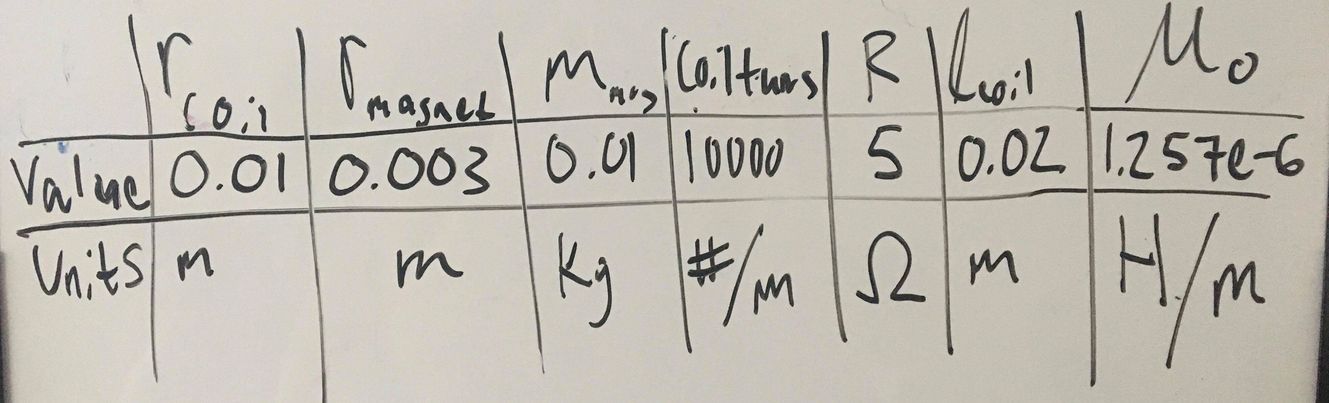 r coil r magnet m mass Coil turns R l coil μ0
Value 0.01 0.003 0.01 10000 5 0.02 1.257e-6
Units m m Kg #/m Ω m H/m